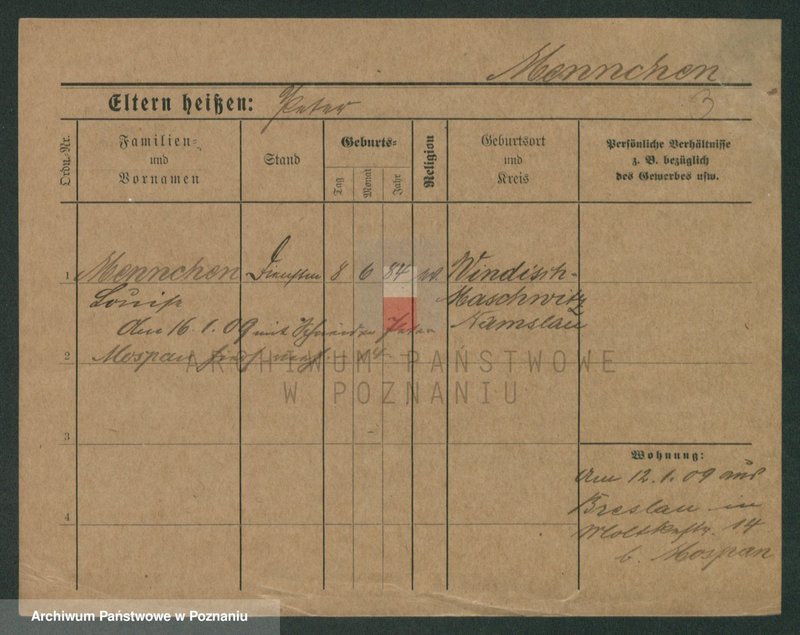 Mennchen
3
Eltern heißen: Peter
Ordn.-Nr.
Familien-
und
Vornamen
Stand
Geburts-
Tag
Monat
Jahr
Religion
Geburtsort
und
Kreis
Persönliche Verhältnisse
z. B. bezüglich
des Gewerbes usw.
1 Mennchen 8 6 84 Windisch-
Maschwitz
Namslau
am 16.1.09 mit Schneider Peter
2 Mospan
ARCHIWUM PAŃSTWOWE
W POZNANIU
3
Wohnung:
Am 12.1.09 aus
Breslau in
Moltkestr. 14
b. Mospan
4
Archiwum Państwowe w Poznaniu